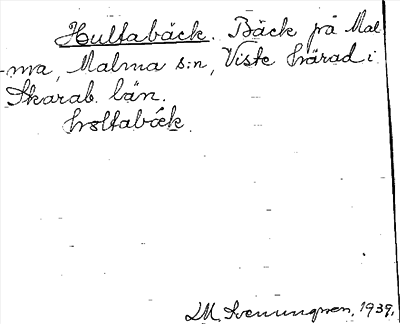 Hultabäck. Bäck på Mal
-ma, Malma s:n, Viste härad i
Skarab. län.
holtabäk
LM Svenungsson, 1939.